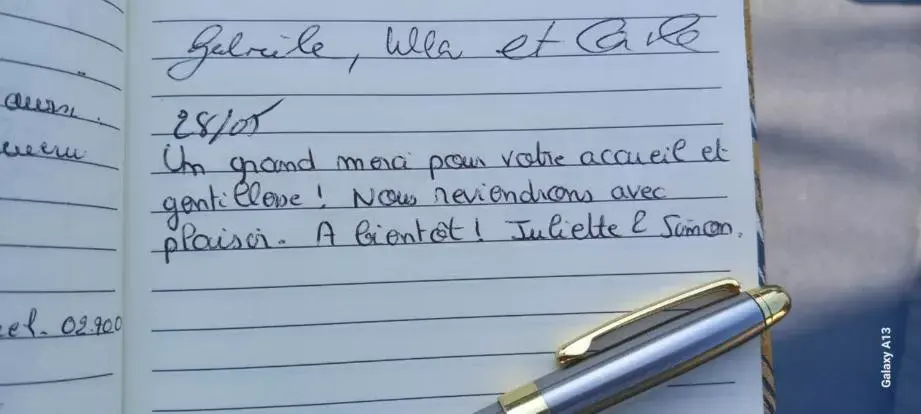 aussi.
et
28/05
Un grand merci pour votre accueil et
gentillesse ! Nous reviendrons avec
plaisir. A bientôt ! Juliette & Simon.
02.900
Galaxy A13